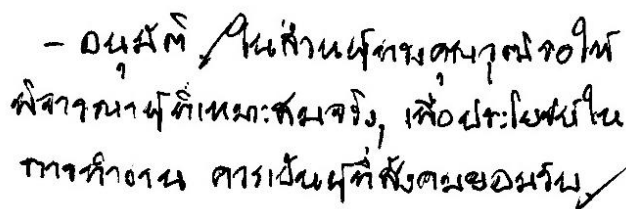 - อนุมัติ ในส่วนผู้ทรงคุณวุฒิขอให้
พิจารณาผู้ที่เหมาะสมจริงๆ เพื่อประโยชน์ใน
การทำงาน ควรเป็นผู้ที่สังคมยอมรับ